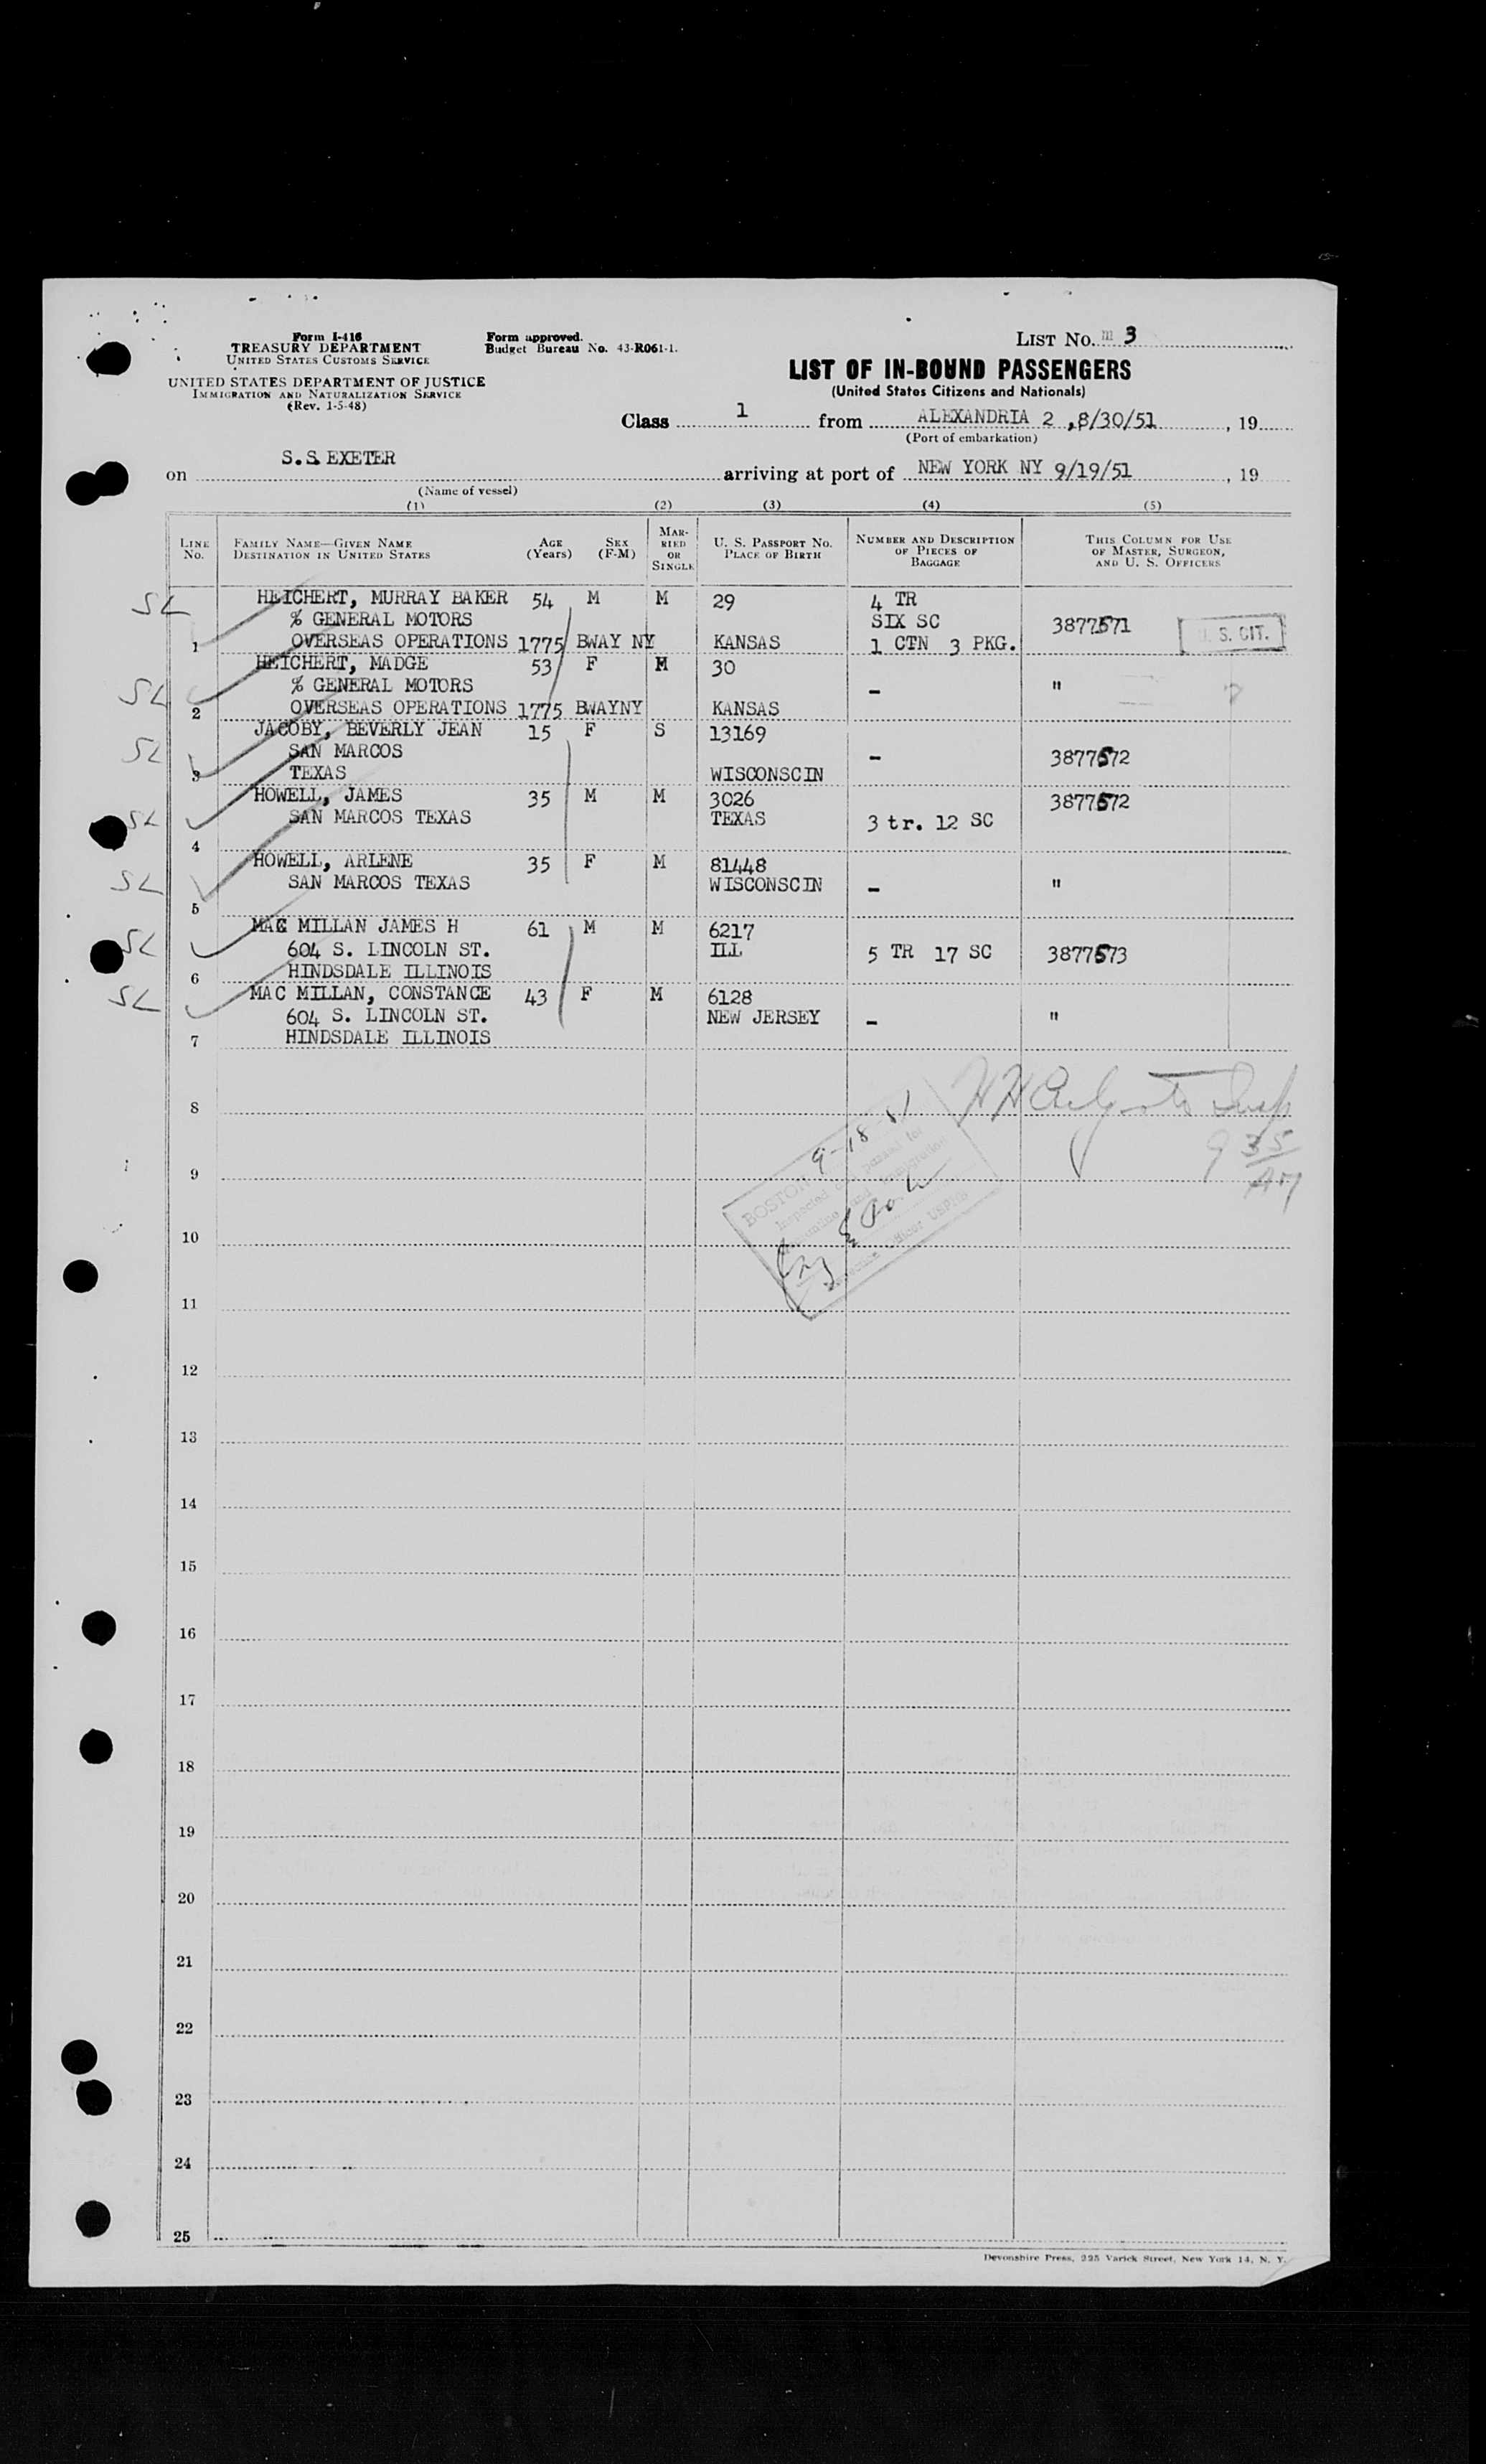 Form I-416
TREASURY DEPARTMENT
UNITED STATES CUSTOMS SERVICE
UNITED STATES DEPARTMENT OF JUSTICE
IMMIGRATION AND NATURALIZATION SERVICE
(Rev. 1-5-48)
Form approved.
Budget Bureau No. 43-R061-1.
LIST No. m 3
LIST OF IN-BOUND PASSENGERS
(United States Citizens and Nationals)
Class 1 from ALEXANDRIA 2 ,8/30/51, 19
(Port of embarkation)
on S.S. EXETER arriving at port of NEW YORK NY 9/19/51, 19
(Name of vessel)
(1) (2) (3) (4) (5)
LINE NO. FAMILY NAME—GIVEN NAME DESTINATION IN UNITED STATES AGE (Years) SEX (F-M) MARRIED OR SINGLE U. S. PASSPORT NO. PLACE OF BIRTH NUMBER AND DESCRIPTION OF PIECES OF BAGGAGE THIS COLUMN FOR USE OF MASTER, SURGEON, AND U. S. OFFICERS
SL HEICHERT, MURRAY BAKER 54 M M 29 4 TR
% GENERAL MOTORS SIX SC 3877571 S. CIT.
1 OVERSEAS OPERATIONS 1775 BWAY NY KANSAS 1 CTN 3 PKG.
HEICHERT, MADGE 53 F M 30
SL % GENERAL MOTORS - "
2 OVERSEAS OPERATIONS 1775 BWAYNY KANSAS
JACOBY, BEVERLY JEAN 15 F S 13169
SL SAN MARCOS - 3877572
3 TEXAS WISCONSCIN
HOWELL, JAMES 35 M M 3026 3877572
SL SAN MARCOS TEXAS TEXAS 3 tr. 12 SC
4
HOWELL, ARLENE 35 F M 81448
SL SAN MARCOS TEXAS WISCONSCIN - "
5
MAC MILLAN JAMES H 61 M M 6217
SL 604 S. LINCOLN ST. ILL 5 TR 17 SC 3877573
6 HINDSDALE ILLINOIS
SL MAC MILLAN, CONSTANCE 43 F M 6128
604 S. LINCOLN ST. NEW JERSEY - "
7 HINDSDALE ILLINOIS
8
9 35
AM
BOSTON 9-18-51
Inspected and passed for
Quarantine and Immigration
Officer USPHS
9
10
11
12
13
14
15
16
17
18
19
20
21
22
23
24
25
Devonshire Press, 225 Varick Street, New York 14, N. Y.